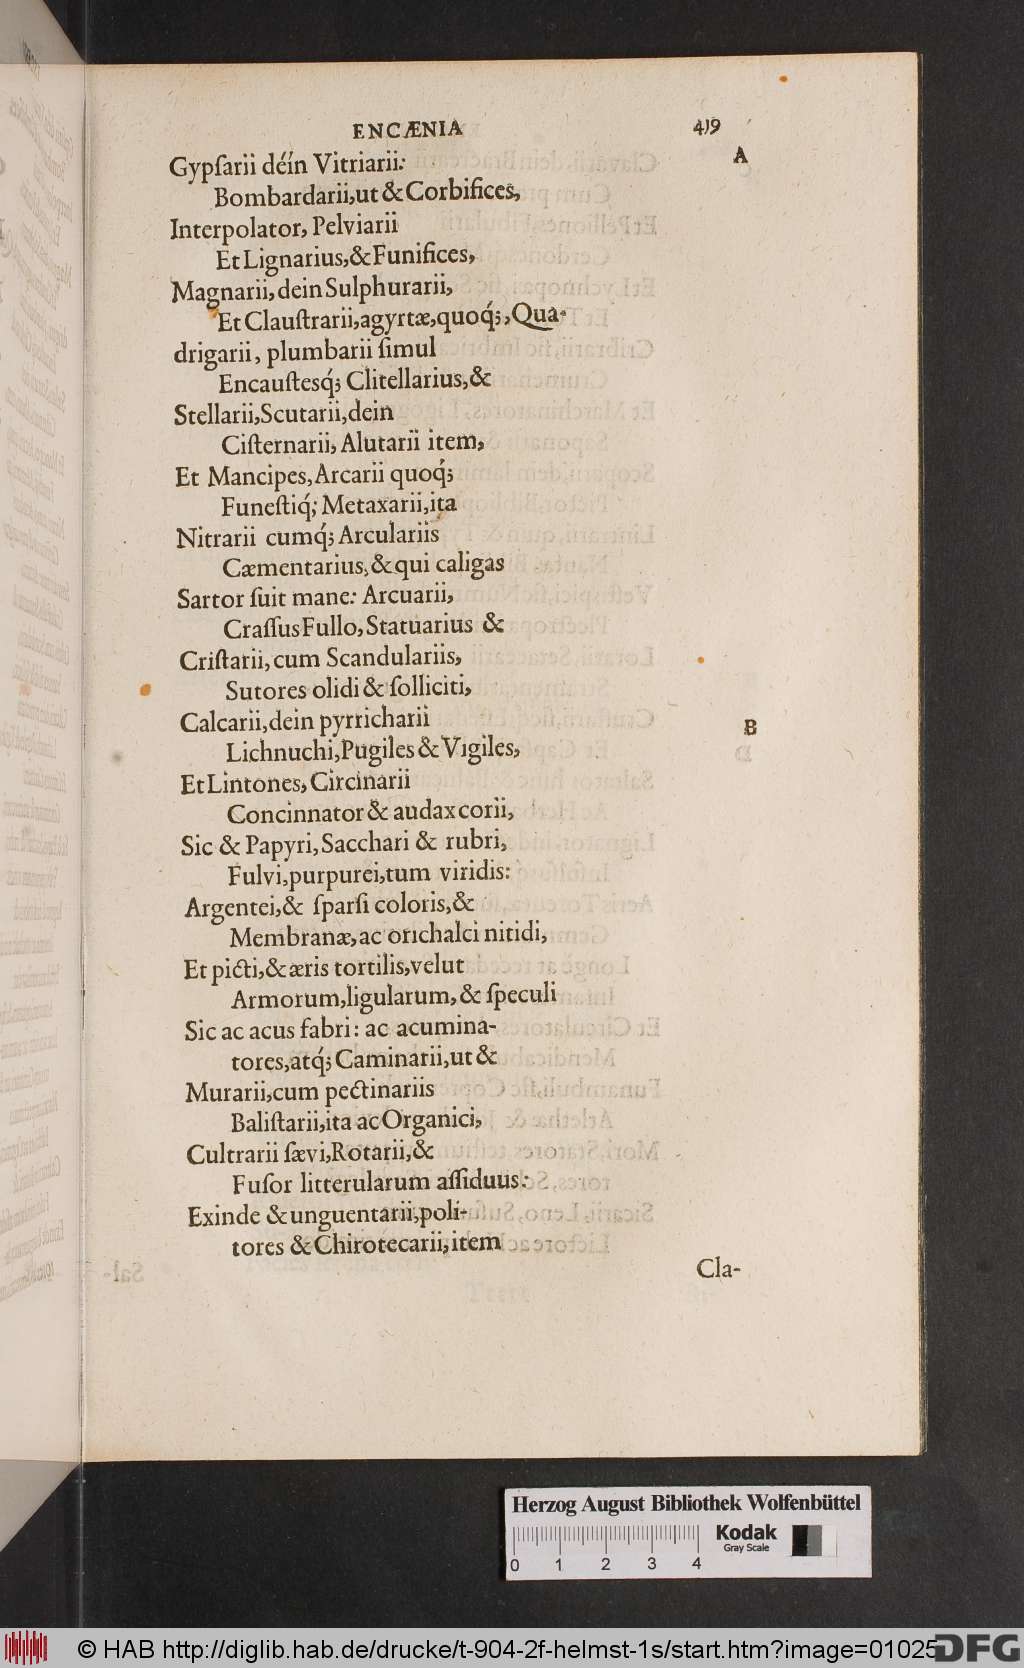 ENCÆNIA 419
A
Gypſarii déín Vitriarii:
Bombardarii,ut & Corbifices,
Interpolator, Pelviarii
Et Lignarius,& Funifices,
Magnarii, dein Sulphurarii,
Et Clauſtrarii,agyrtæ,quoq́;,Qua-
drigarii, plumbarii ſimul
Encauſtesq́; Clitellarius,&
Stellarii,Scutarii,dein
Ciſternarii, Alutarii item,
Et Mancipes,Arcarii quoq́;
Funeſtiq́; Metaxarii,ita
Nitrarii cumq́; Arculariis
Cæmentarius,& qui caligas
Sartor ſuit mane: Arcuarii,
Craſſus Fullo, Statuarius &
Criſtarii, cum Scandulariis,
Sutores olidi & ſolliciti,
Calcarii,dein pyrricharii
B
Lichnuchi,Pugiles & Vigiles,
Et Lintones, Circinarii
Concinnator & audax corii,
Sic & Papyri, Sacchari & rubri,
Fulvi,purpurei,tum viridis:
Argentei,& ſparſi coloris,&
Membranæ,ac orichalci nitidi,
Et picti,& æris tortilis,velut
Armorum,ligularum, & ſpeculi
Sic ac acus fabri: ac acumina-
tores,atq́; Caminarii,ut &
Murarii,cum pectinariis
Baliſtarii,ita ac Organici,
Cultrarii ſævi,Rotarii,&
Fuſor litterularum aſſiduus:
Exinde & unguentarii,poli-
tores & Chirotecarii,item
Cla-
Herzog August Bibliothek Wolfenbüttel
Kodak
Gray Scale
0 1 2 3 4
© HAB http://diglib.hab.de/drucke/t-904-2f-helmst-1s/start.htm?image=01025
DFG